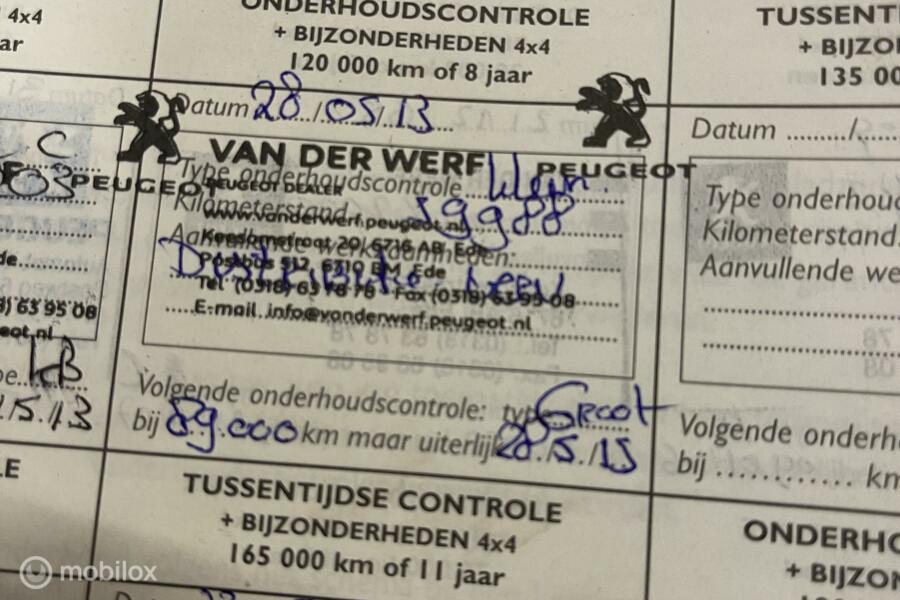 4x4
ar
ONDERHOUDSCONTROLE
+ BIJZONDERHEDEN 4x4
120 000 km of 8 jaar
Datum 28/05/13
VAN DER WERF
PEUGEOT
PEUGEOT
PEUGEOT DEALER
Type onderhoudscontrole klein
www.vanderwerf.peugeot.nl
Kilometerstand 59988
20, 6716 AB Ede
Postbus 512, 6710 BM Ede
Tel (0318) 63 78 78 Fax (0318) 63 95 08
E-mail info@vanderwerf.peugeot.nl
Volgende onderhoudscontrole: type Groot
bij 89.000 km maar uiterlijk 28/5/15
TUSSENTIJDSE CONTROLE
+ BIJZONDERHEDEN 4x4
165 000 km of 11 jaar
63 95 08
eot.nl
KB
15.13
LE
TUSSENT
+ BIJZO
135 00
Datum ........./.
Type onderhoud
Kilometerstand.
Aanvullende we
Volgende onderh
bij ............ km
ONDERHO
+ BIJZON
mobilox